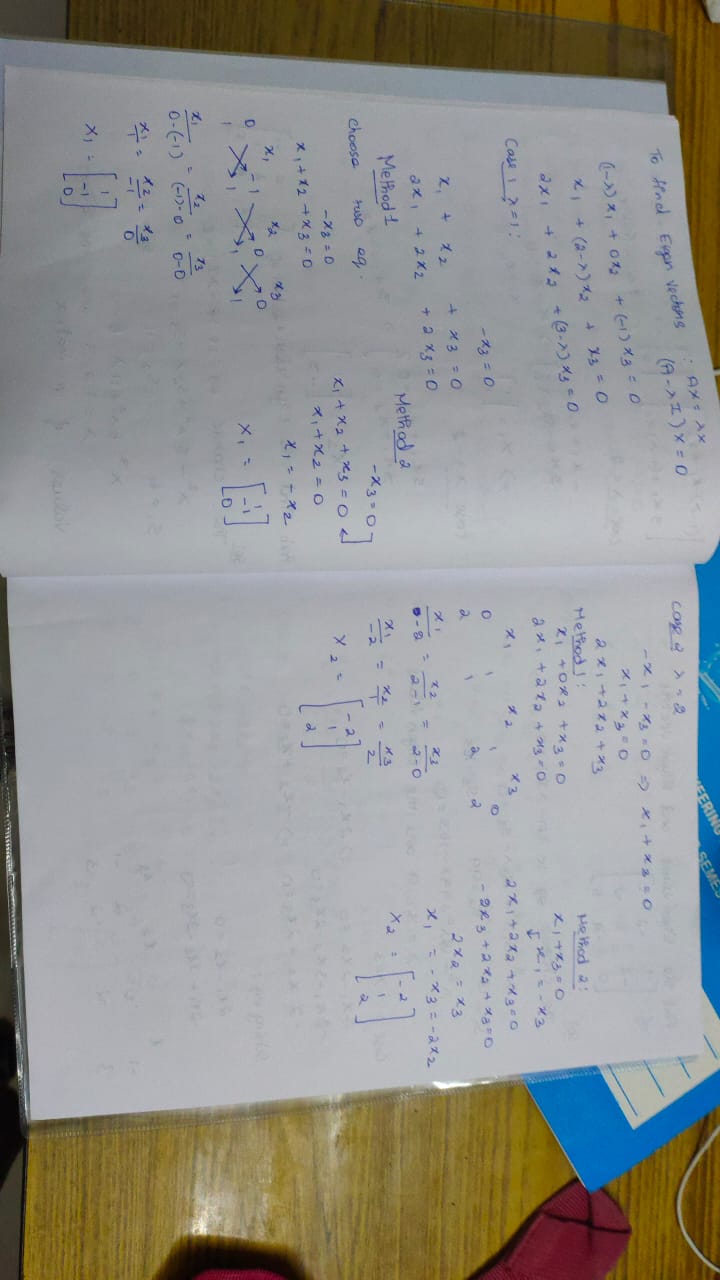 To find Eigen vectors : AX = λX
(A-λI)X=0
(1-λ)x₁ + 0x₂ + (-1)x₃ = 0
x₁ + (2-λ)x₂ + x₃ = 0
2x₁ + 2x₂ + (3-λ)x₃=0
Case 1 λ=1:
-x₃=0
x₁ + x₂ + x₃ = 0
2x₁ + 2x₂ + 2x₃=0
Method 1
choose two eq.
-x₃=0
x₁+x₂+x₃=0
x₁ x₂ x₃
0 -1 0 0
1 1 1 1
x₁/0-(-1) = x₂/(-1)-0 = x₃/0-0
x₁/1 = x₂/-1 = x₃/0
X₁ = [1 -1 0]
Method 2
-x₃=0
x₁+x₂+x₃=0
x₁+x₂=0
x₁=-x₂
X₁ = [1 -1 0]
Case 2 λ=2
-x₁-x₃=0 ⇒ x₁+x₃=0
x₁+x₃=0
2x₁+2x₂+x₃
Method 1:
x₁+0x₂+x₃=0
2x₁+2x₂+x₃=0
x₁ x₂ x₃
0 1 1 0
2 1 2 2
x₁/0-2 = x₂/2-1 = x₃/2-0
x₁/-2 = x₂/1 = x₃/2
X₂ = [-2 1 2]
Method 2:
x₁+x₃=0
↓ x₁=-x₃
2x₁+2x₂+x₃=0
-2x₃+2x₂+x₃=0
2x₂=x₃
x₁=-x₃=-2x₂
X₂ = [-2 1 2]
SEMES